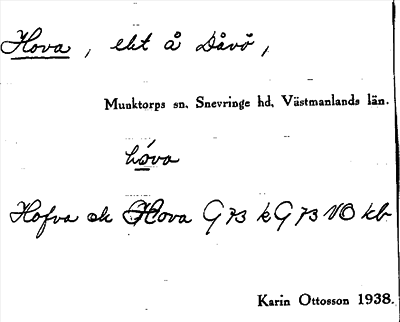 Hova, ekt å Dåvö,
Munktorps sn. Snevringe hd, Västmanlands län.
hóva
Hofva ek Hova G 73 k G 73 NO kb
Karin Ottosson 1938.